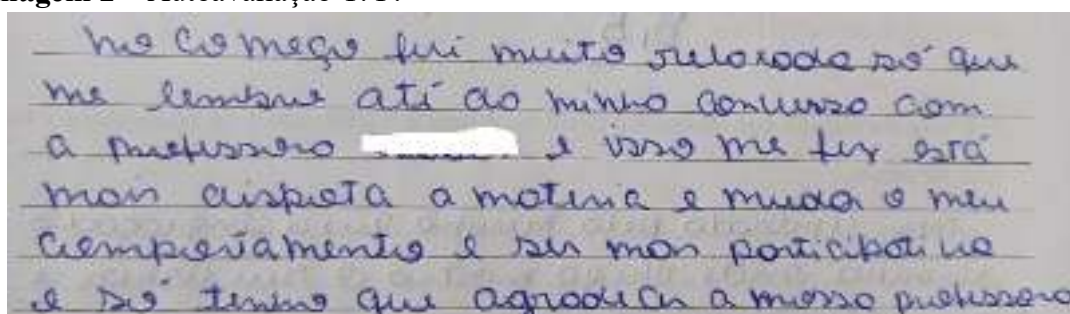 no começo fui muito relaxada só que
me lembrue ati ao minho conversa com
a professora e isso me fez está
mais disposta a materia e muda o meu
comportamento e ser mais participativa
e só tenho que agradecer a nossa professora